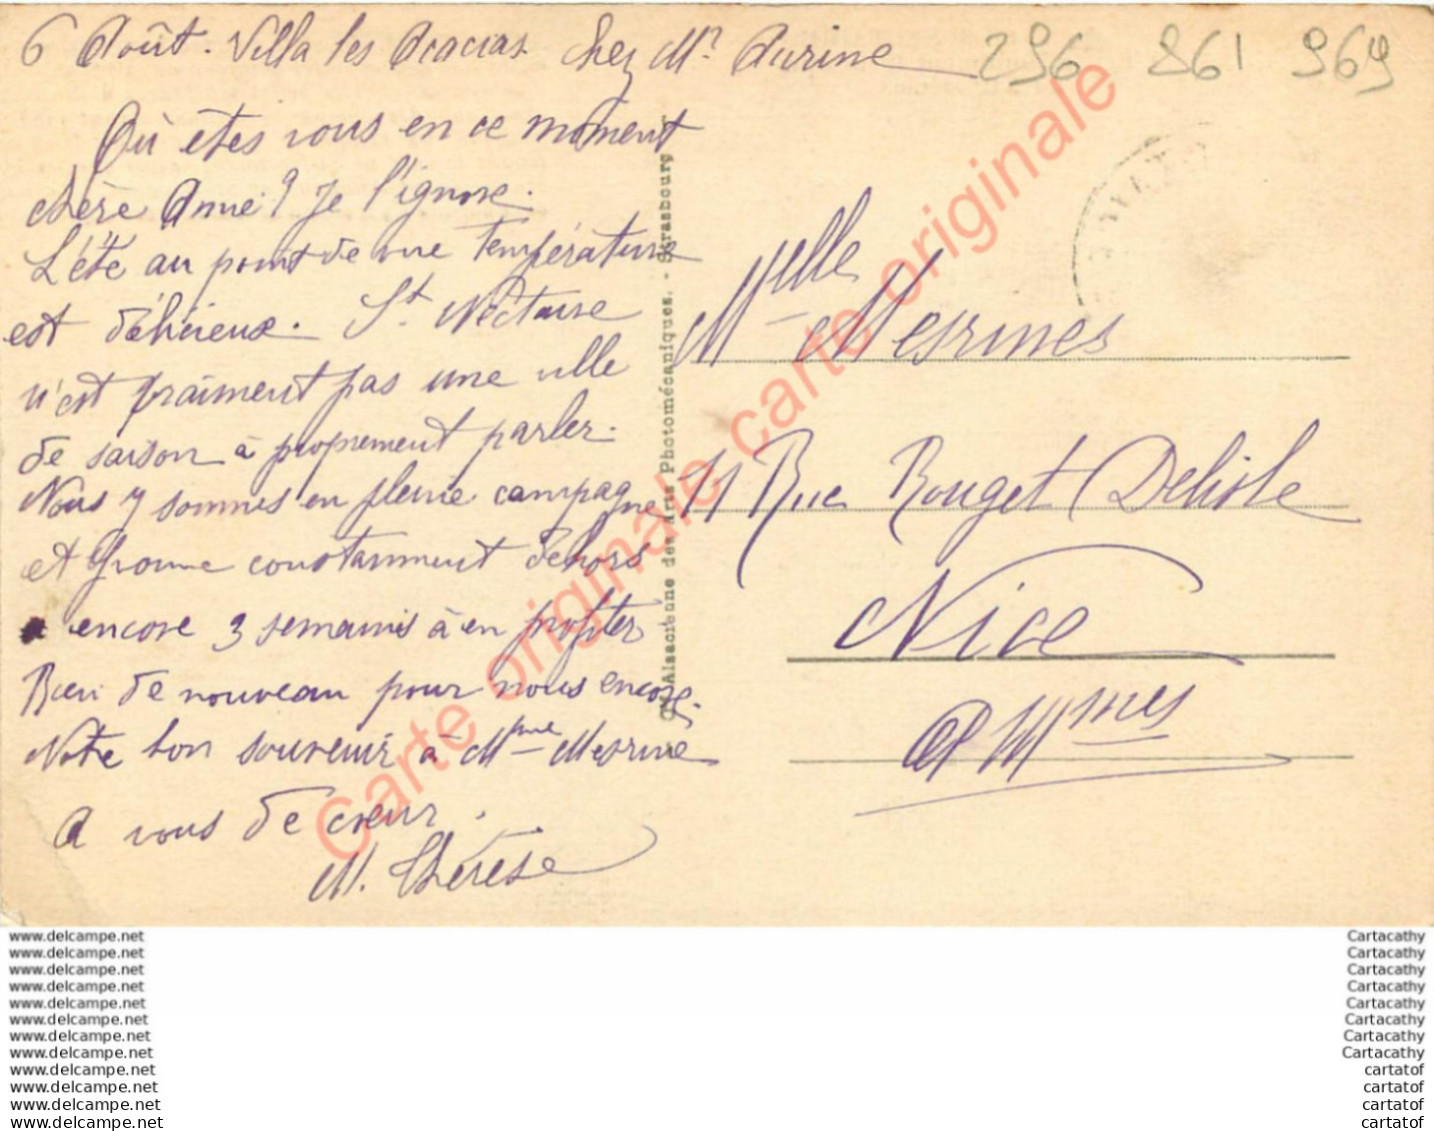 6 Août. Villa les Acacias chez Mr Aurine
296 861 969
Où êtes vous en ce moment
chère Anne? Je l'ignore.
L'été au point de vue température
est délicieux. St Nectaire
n'est vraiment pas une ville
de saison à proprement parler.
Nous y sommes en pleine campagne
et constamment dehors
encore 3 semaines à en profiter
Rien de nouveau pour nous encore.
Notre bon souvenir à Mme Mesrine
A vous de cœur.
M. Thérèse
Cie Alsacienne des Arts Photomécaniques. - Strasbourg
Melle Mesrines
11 Rue Rouget Delisle
Nice
A Mmes
Carte originale carte originale carte originale
www.delcampe.net Cartacathy
www.delcampe.net Cartacathy
www.delcampe.net Cartacathy
www.delcampe.net Cartacathy
www.delcampe.net Cartacathy
www.delcampe.net Cartacathy
www.delcampe.net Cartacathy
www.delcampe.net Cartacathy
www.delcampe.net cartatof
www.delcampe.net cartatof
www.delcampe.net cartatof
www.delcampe.net cartatof